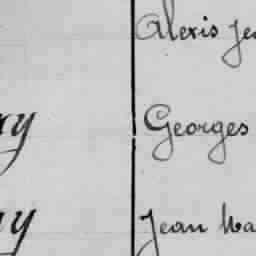 Alexis Je
xy Georges
y Jean Ma